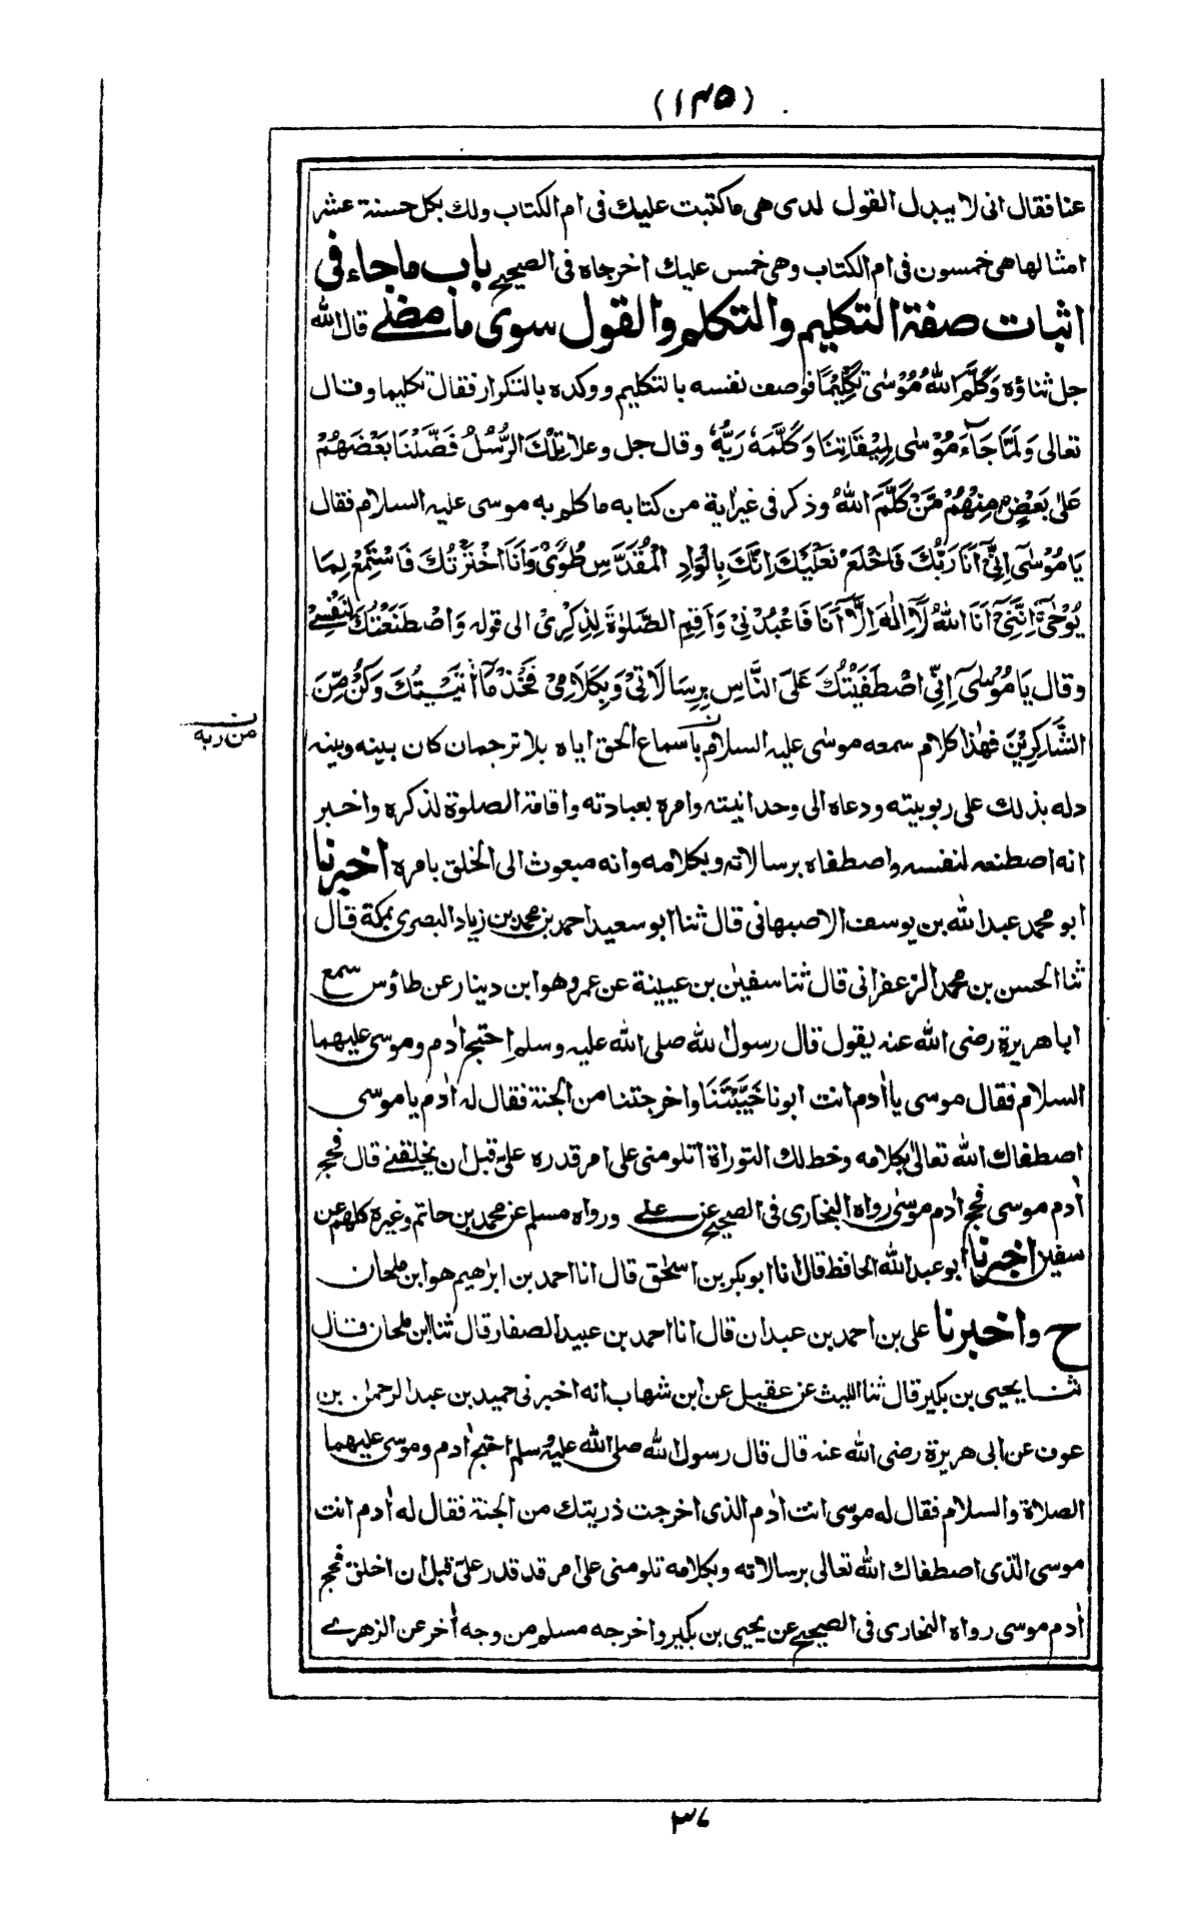 (١٤٥)
عنا فقال انى لا يبدل القول لدى هى ما كتبت عليك فى ام الكتاب ولك بكل حسنة عشر
امثالها هى خمسون فى ام الكتاب وهى خمس عليك اخرجاه فى الصحيح باب ما جاء فى
اثبات صفة التكليم والتكلم والقول سوى ما مضى قال الله
جل ثناؤه وَكَلَّمَ اللهُ مُوْسٰى تَكْلِيْمًا فوصف نفسه بالتكليم ووكده بالتكرار فقال تكليما وقال
تعالى وَلَمَّا جَآءَ مُوْسٰى لِمِيْقَاتِنَا وَكَلَّمَهٗ رَبُّهٗ وقال جل وعلا تِلْكَ الرُّسُلُ فَضَّلْنَا بَعْضَهُمْ
عَلٰى بَعْضٍ مِنْهُمْ مَّنْ كَلَّمَ اللهُ وذكر فى غير اية من كتابه ما كلم به موسى عليه السلام فقال
يَا مُوْسٰٓى اِنِّىْٓ اَنَا رَبُّكَ فَاخْلَعْ نَعْلَيْكَ اِنَّكَ بِالْوَادِ الْمُقَدَّسِ طُوًى وَاَنَا اخْتَرْتُكَ فَاسْتَمِعْ لِمَا
يُوْحٰىٓ اِنَّنِىْٓ اَنَا اللهُ لَآ اِلٰهَ اِلَّآ اَنَا فَاعْبُدْنِىْ وَاَقِمِ الصَّلٰوةَ لِذِكْرِىْ الى قوله وَاصْطَنَعْتُكَ لِنَفْسِىْ
وقال يَا مُوْسٰٓى اِنِّى اصْطَفَيْتُكَ عَلَى النَّاسِ بِرِسَالَاتِىْ وَبِكَلَامِىْ فَخُذْ مَآ اٰتَيْتُكَ وَكُنْ مِّنَ
الشَّاكِرِيْنَ فهٰذا كلام سمعه موسٰى عليه السلام باسماع الحق اياه بلا ترجمان كان بينه وبينه
ن
من ربه
دله بذلك على ربوبيته ودعاه الى وحدانيته وامره بعبادته واقامة الصلوة لذكره واخبر
انه اصطنعه لنفسه واصطفاه برسالاته وبكلامه وانه مبعوث الى الخلق بامره اخبرنا
ابو محمد عبد الله بن يوسف الاصبهانى قال ثنا ابو سعيد احمد بن محمد بن زياد البصرى بمكة قال
ثنا الحسن بن محمد الزعفرانى قال ثنا سفيٰن بن عيينة عن عمرو هو ابن دينار عن طاؤس سمع
ابا هريرة رضى الله عنه يقول قال رسول لله صلى الله عليه وسلم احتج اٰدم وموسى عليهما
السلام فقال موسى يا اٰدم انت ابونا خَيَّبْتَنَا واخرجتنا من الجنة فقال له اٰدم يا موسى
اصطفاك الله تعالى بكلامه وخط لك التوراة اتلومنى على امر قدره علىّ قبل ان يخلقنى قال فحج
اٰدم موسى فحج اٰدم موسٰى رواه البخارى فى الصحيح عن على ورواه مسلم عن محمد بن حاتم وغيره كلهم عن
سفيٰن اخبرنا ابو عبد الله الحافظ قال انا ابو بكر بن اسحٰق قال انا احمد بن ابراهيم هو ابن ملحان
ح واخبرنا على بن احمد بن عبدان قال انا احمد بن عبيد الصفار قال ثنا ابن ملحان قال
ثنا يحيى بن بكير قال ثنا الليث عن عقيل عن ابن شهاب انه اخبرنى حميد بن عبد الرحمٰن بن
عوف عن ابى هريرة رضى الله عنه قال قال رسول الله صلى الله عليه وسلم احتج اٰدم وموسى عليهما
الصلاة والسلام فقال له موسى انت اٰدم الذى اخرجت ذريتك من الجنة فقال له اٰدم انت
موسى الذى اصطفاك الله تعالى برسالاته وبكلامه تلومنى على امر قد قدر علىّ قبل ان اخلق فحج
اٰدم موسى رواه البخارى فى الصحيح عن يحيى بن بكير واخرجه مسلم من وجه اٰخر عن الزهرى
٣٧